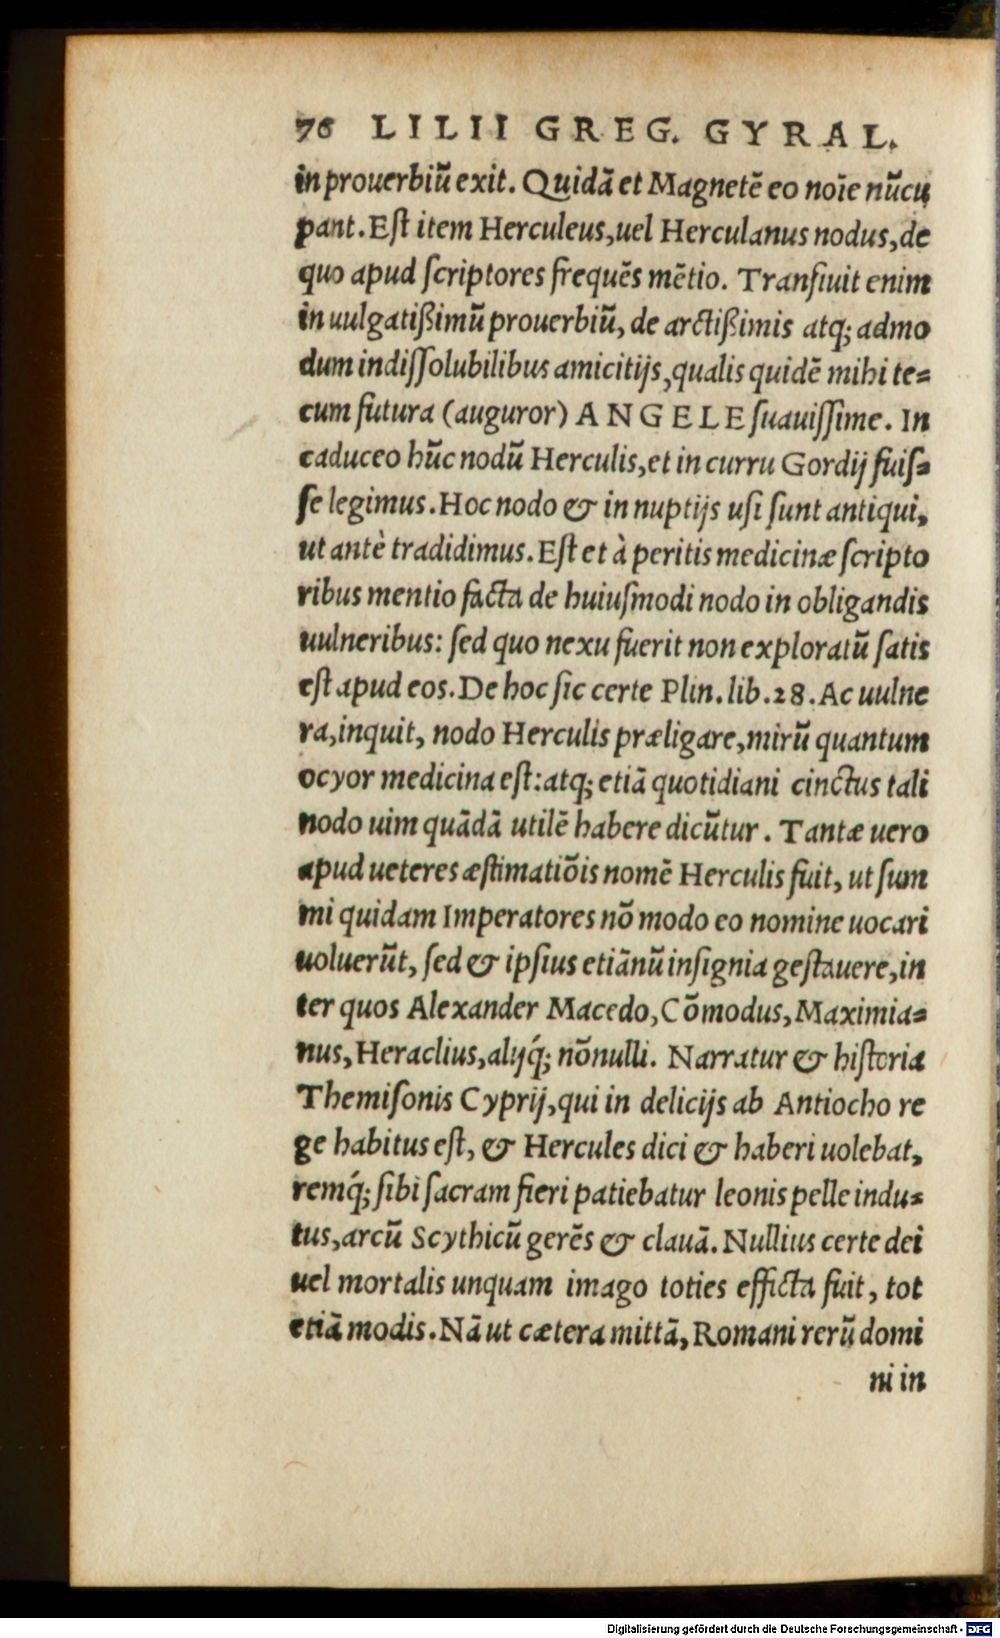 76 LILII GREG. GYRAL.
in prouerbiũ exit. Quidã et Magnetẽ eo noĩe nũcu
pant. Eſt item Herculeus, uel Herculanus nodus, de
quo apud ſcriptores frequẽs mẽtio. Tranſiuit enim
in uulgatißimũ prouerbiũ, de arctißimis atq; admo
dum indiſſolubilibus amicitijs, qualis quidẽ mihi te=
cum futura (auguror) ANGELE ſuauiſſime. In
caduceo hũc nodũ Herculis, et in curru Gordij fuiſ=
ſe legimus. Hoc nodo & in nuptijs uſi ſunt antiqui,
ut antè tradidimus. Eſt et à peritis medicinæ ſcripto
ribus mentio facta de huiuſmodi nodo in obligandis
uulneribus: ſed quo nexu fuerit non exploratũ ſatis
eſt apud eos. De hoc ſic certe Plin. lib. 28. Ac uulne
ra, inquit, nodo Herculis præligare, mirũ quantum
ocyor medicina eſt: atq; etiã quotidiani cinctus tali
nodo uim quãdã utilẽ habere dicũtur. Tantæ uero
apud ueteres æſtimatiõis nomẽ Herculis fuit, ut ſum
mi quidam Imperatores nõ modo eo nomine uocari
uoluerũt, ſed & ipſius etiãnũ inſignia geſtauere, in
ter quos Alexander Macedo, Cõmodus, Maximia=
nus, Heraclius, alijq́; nõnulli. Narratur & hiſtoria
Themiſonis Cyprij, qui in delicijs ab Antiocho re
ge habitus eſt, & Hercules dici & haberi uolebat,
remq́; ſibi ſacram fieri patiebatur leonis pelle indu=
tus, arcũ Scythicũ gerẽs & clauã. Nullius certe dei
uel mortalis unquam imago toties efficta fuit, tot
etiã modis. Nã ut cætera mittã, Romani rerũ domi
ni in
Digitalisierung gefördert durch die Deutsche Forschungsgemeinschaft - DFG